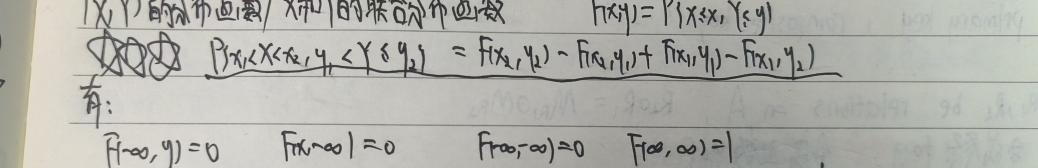 (X,Y)的分布函数/X和Y的联合分布函数 F(x,y)=P{X≤x,Y≤y}
P{x₁<X<x₂, y₁<Y≤y₂} = F(x₂,y₂)-F(x₂,y₁)+F(x₁,y₁)-F(x₁,y₂)
有:
F(-∞,y)=0 F(x,-∞)=0 F(-∞,-∞)=0 F(∞,∞)=1